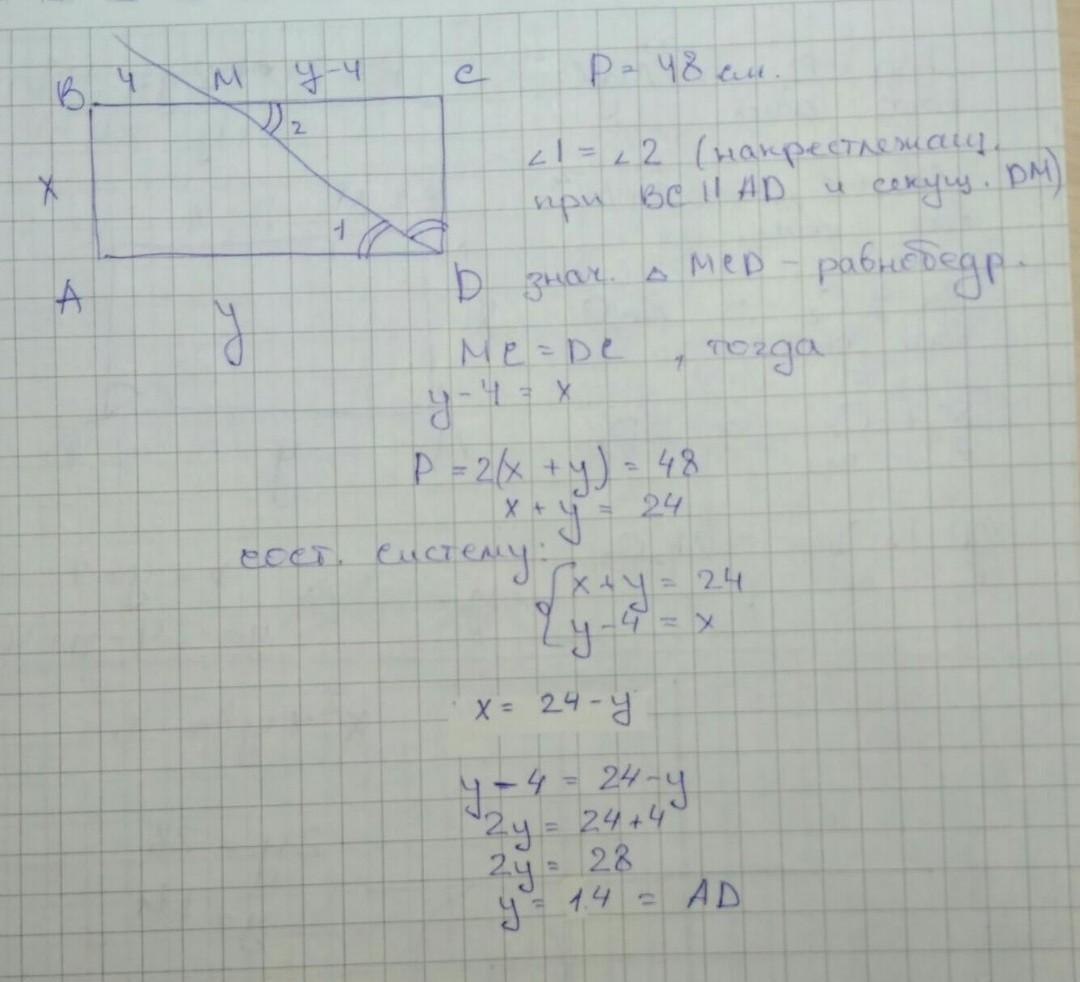 B 4 M y-4 C P = 48 см.
2
∠1 = ∠2 (накрестлежащ.
x при BC || AD и секущ. DM)
1
A y D знач. △ MCD - равнобедр.
MC = DC , тогда
y - 4 = x
P = 2(x + y) = 48
x + y = 24
сост. систему:
{ x + y = 24
y - 4 = x
x = 24 - y
y - 4 = 24 - y
2y = 24 + 4
2y = 28
y = 14 = AD